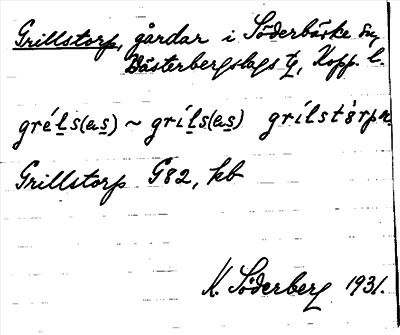 Grillstorp, gårdar i Söderbärke sn,
Västerbergslags tg, Kopp. l.
gré´l̲s(a̲s̲) ~ grí´l̲s(a̲s̲) grílst`ȯrpa̲
Grillstorp G82, kb
K. Söderberg 1931.